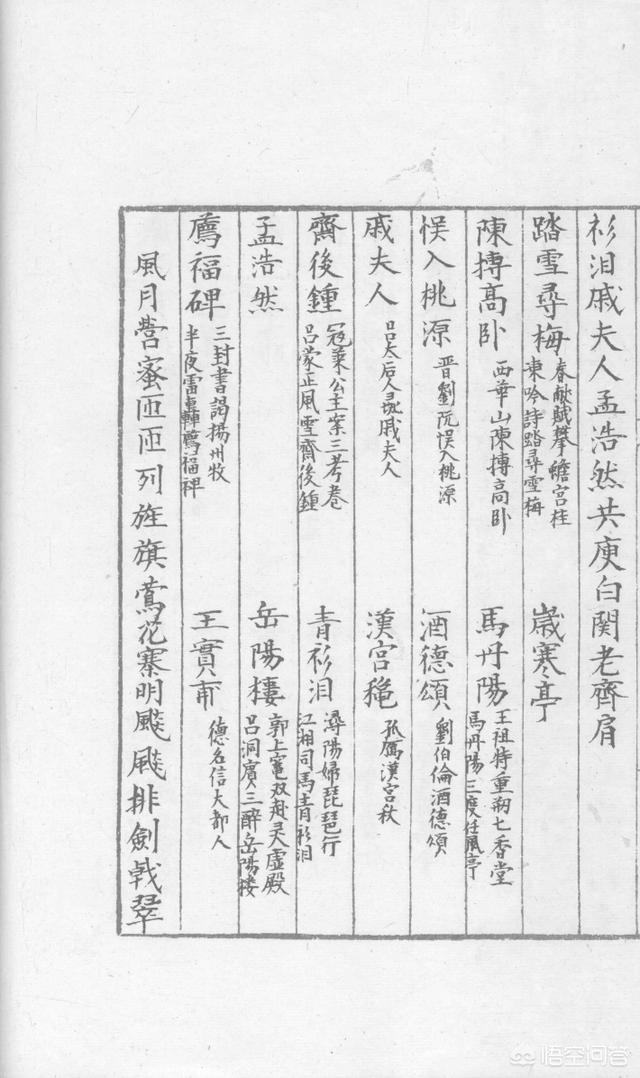 衫泪戚夫人孟浩然共庾白関老齊肩
踏雪尋梅
春献賦攀蟾宫桂
東吟詩踏尋雪梅
歳寒亭
陳摶高卧
西華山陳摶高卧
馬丹陽
王祖特重朔七香堂
馬丹陽三度任風亭
悮入桃源
晋劉阮悮入桃源
酒德頌
劉伯倫酒德頌
戚夫人
吕太后人彘戚夫人
漢宫穐
孤鴈漢宫秋
齋後鍾
冦莱公主案三考卷
吕蒙正風雪齋後鍾
青衫泪
潯陽婦琵琶行
江湘司馬青衫泪
孟浩然
岳陽楼
郭上竈双赴灵虚殿
吕洞賔三醉岳陽楼
薦福碑
三封書謁揚州牧
半夜雷轟薦福碑
王實甫
德名信大都人
風月营蜜匝匝列旌旗鶯花寨明颩颩排劍戟翠
悟空问答